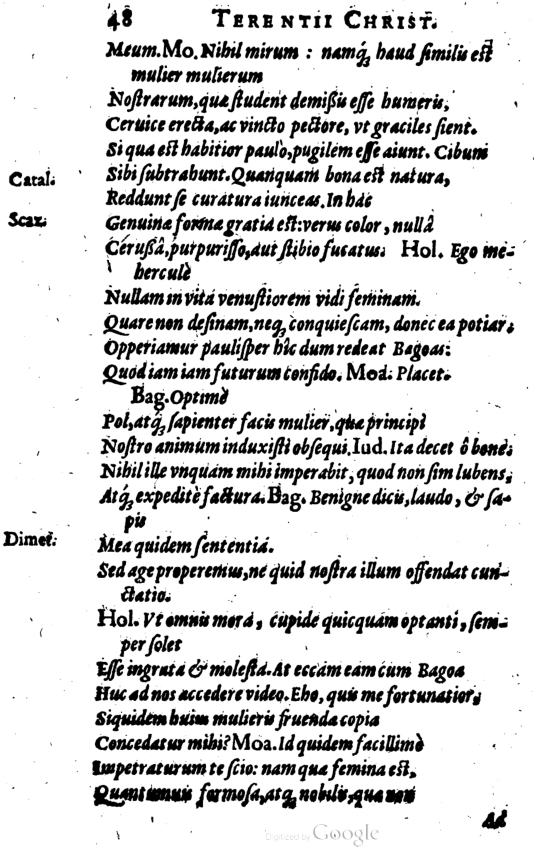 48 TERENTII CHRIST.
Meum. Mo. Nihil mirum : namq́; haud ſimilis eſt
mulier mulierum
Noſtrarum, quæ ſtudent demißis eſſe humeris,
Ceruice erecta, ac vincto pectore, vt graciles ſient.
Si qua eſt habitior paulo, pugilem eſſe aiunt. Cibum
Catal. Sibi ſubtrahunt. Quanquam bona est natura,
Reddunt ſe curatura iunceas. In hac
Scaz. Genuina formæ gratia eſt: verus color, nullâ
Cerußâ, purpuriſſo, aut ſtibio fucatus. Hol. Ego me-
herculè
Nullam in vitâ venuſtiorem vidi feminam.
Quare non deſinam, neq; conquieſcam, donec ea potiar.
Opperiamur pauliſper hîc dum redeat Bagoas:
Quod iam iam futurum confido. Moa. Placet.
Bag. Optimè
Pol, atq; ſapienter facis mulier, quæ principi
Noſtro animum induxiſti obſequi. Iud. Ita decet ô bone.
Nihil ille vnquam mihi imperabit, quod non ſim lubens,
Atq́; expeditè factura. Bag. Benigne dicis, laudo, & ſa-
pis
Dimet. Mea quidem ſententiâ.
Sed age properemus, ne quid noſtra illum offendat cun-
ctatio.
Hol. Vt omnis mora, cupide quicquam optanti, ſem-
per ſolet
Eſſe ingrata & moleſta. At eccam eam cum Bagoa
Huc ad nos accedere video. Eho, quis me fortunatior,
Siquidem huius mulieris fruenda copia
Concedatur mihi? Moa. Id quidem facillimè
Impetraturum te ſcio: nam quæ femina eſt,
formoſa, atq; nobilis, quæ non
Ad
Digitized by Google